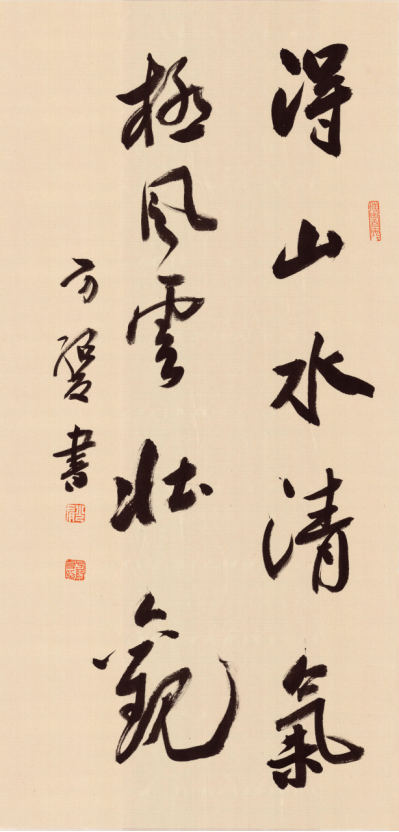 得山水清氣
極風雲壯觀
方賢書